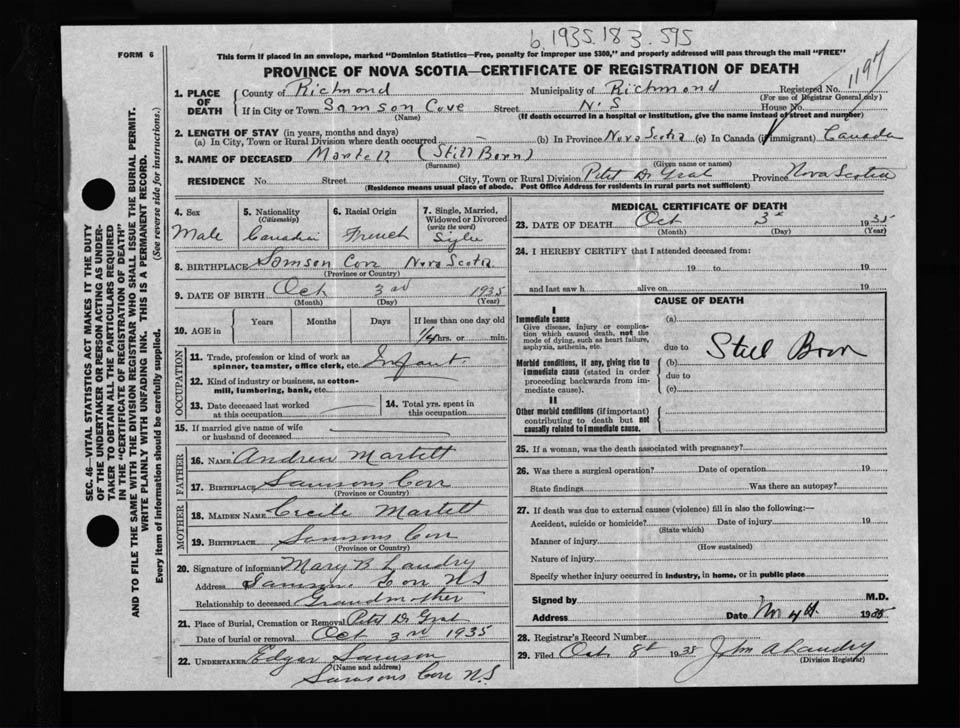 b. 1935.183.595
FORM 6
This form if placed in an envelope, marked "Dominion Statistics—Free, penalty for improper use $300," and properly addressed will pass through the mail "FREE"
PROVINCE OF NOVA SCOTIA—CERTIFICATE OF REGISTRATION OF DEATH
1197
1. PLACE OF DEATH
County of Richmond Municipality of Richmond Registered No.
(For use of Registrar General only)
If in City or Town Samson Cove Street N.S House No.
(Name) (If death occurred in a hospital or institution, give the name instead of street and number)
2. LENGTH OF STAY (in years, months and days)
(a) In City, Town or Rural Division where death occurred — (b) In Province Nova Scotia (c) In Canada (if immigrant) Canada
3. NAME OF DECEASED Martell (Still Born)
(Surname) (Given name or names)
RESIDENCE No. Street City, Town or Rural Division Petit De Grat Province Nova Scotia
(Residence means usual place of abode. Post Office Address for residents in rural parts not sufficient)
4. Sex
Male
5. Nationality
(Citizenship)
Canadian
6. Racial Origin
French
7. Single, Married,
Widowed or Divorced
(write the word)
8. BIRTHPLACE Samson Cove Nova Scotia
(Province or Country)
9. DATE OF BIRTH Oct 3rd 1935
(Month) (Day) (Year)
10. AGE in
Years Months Days If less than one day old
1/4 hrs. or min.
OCCUPATION
11. Trade, profession or kind of work as
spinner, teamster, office clerk, etc. Infant
12. Kind of industry or business, as cotton-
mill, lumbering, bank, etc.
13. Date deceased last worked
at this occupation
14. Total yrs. spent in
this occupation
15. If married give name of wife
or husband of deceased
FATHER
16. NAME Andrew Martell
17. BIRTHPLACE Samsons Cove
(Province or Country)
MOTHER
18. MAIDEN NAME Cecile Martell
19. BIRTHPLACE Samsons Cove
(Province or Country)
20. Signature of informant Mary B Landry
Address Samsons Cove N S
Relationship to deceased Grandmother
21. Place of Burial, Cremation or Removal Petit De Grat
Date of burial or removal Oct 3rd 1935
22. UNDERTAKER Edgar Samson
(Name and address)
Samsons Cove N.S
MEDICAL CERTIFICATE OF DEATH
23. DATE OF DEATH Oct 3rd 1935
(Month) (Day) (Year)
24. I HEREBY CERTIFY that I attended deceased from:
19 to 19
and last saw h alive on 19
CAUSE OF DEATH
I
Immediate cause
Give disease, injury or complica-
tion which caused death, not the
mode of dying, such as heart failure,
asphyxia, asthenia, etc.
Morbid conditions, if any, giving rise to
immediate cause (stated in order
proceeding backwards from im-
mediate cause).
II
Other morbid conditions (if important)
contributing to death but not
causally related to immediate cause.
(a)
due to Still Born
(b)
due to
(c)
25. If a woman, was the death associated with pregnancy?
26. Was there a surgical operation? Date of operation 19
State findings Was there an autopsy?
27. If death was due to external causes (violence) fill in also the following:—
Accident, suicide or homicide? Date of injury 19
(State which)
Manner of injury
(How sustained)
Nature of injury
Specify whether injury occurred in industry, in home, or in public place
Signed by M.D.
Address Date Nov 4th 1935
28. Registrar's Record Number
29. Filed Oct. 8th 1935 John A Landry
(Division Registrar)
SEC. 46—VITAL STATISTICS ACT MAKES IT THE DUTY
OF THE UNDERTAKER OR PERSON ACTING AS UNDER-
TAKER TO OBTAIN ALL THE PARTICULARS REQUIRED
IN THE "CERTIFICATE OF REGISTRATION OF DEATH"
AND TO FILE THE SAME WITH THE DIVISION REGISTRAR WHO SHALL ISSUE THE BURIAL PERMIT.
WRITE PLAINLY WITH UNFADING INK. THIS IS A PERMANENT RECORD.
Every item of information should be carefully supplied. (See reverse side for instructions.)